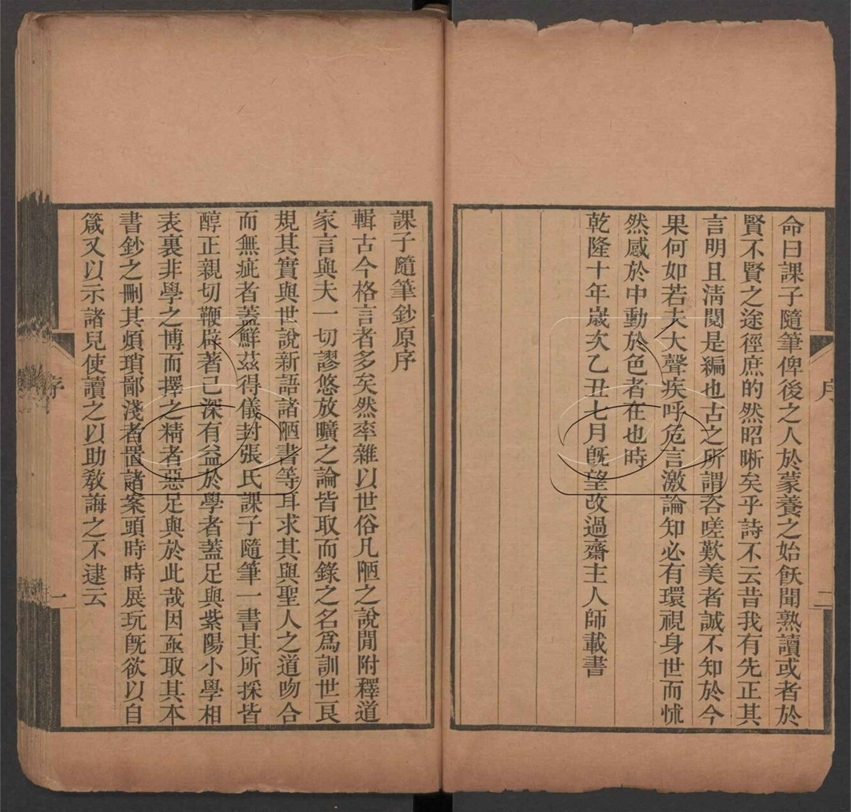 命曰課子隨筆俾後之人於蒙養之始飫聞熟讀或者於
賢不賢之途徑庶的然昭晰矣乎詩不云昔我有先正其
言明且淸閱是編也古之所謂咨嗟歎美者誠不知於今
果何如若夫大聲疾呼危言激論知必有環視身世而怵
然感於中動於色者在也時
乾隆十年歲次乙丑七月旣望改過齋主人師載書
序
二
課子隨筆鈔原序
輯古今格言者多矣然率雜以世俗凡陋之說閒附釋道
家言與夫一切謬悠放曠之論皆取而錄之名爲訓世艮
規其實與世說新語諸陋書等耳求其與聖人之道吻合
而無疵者蓋鮮茲得儀封張氏課子隨筆一書其所採皆
醇正親切鞭辟著己深有益於學者蓋足與紫陽小學相
表裏非學之博而擇之精者惡足與於此哉因亟取其本
書鈔之刪其煩瑣鄙淺者置諸案頭時時展玩旣欲以自
箴又以示諸兒使讀之以助敎誨之不逮云
序
一